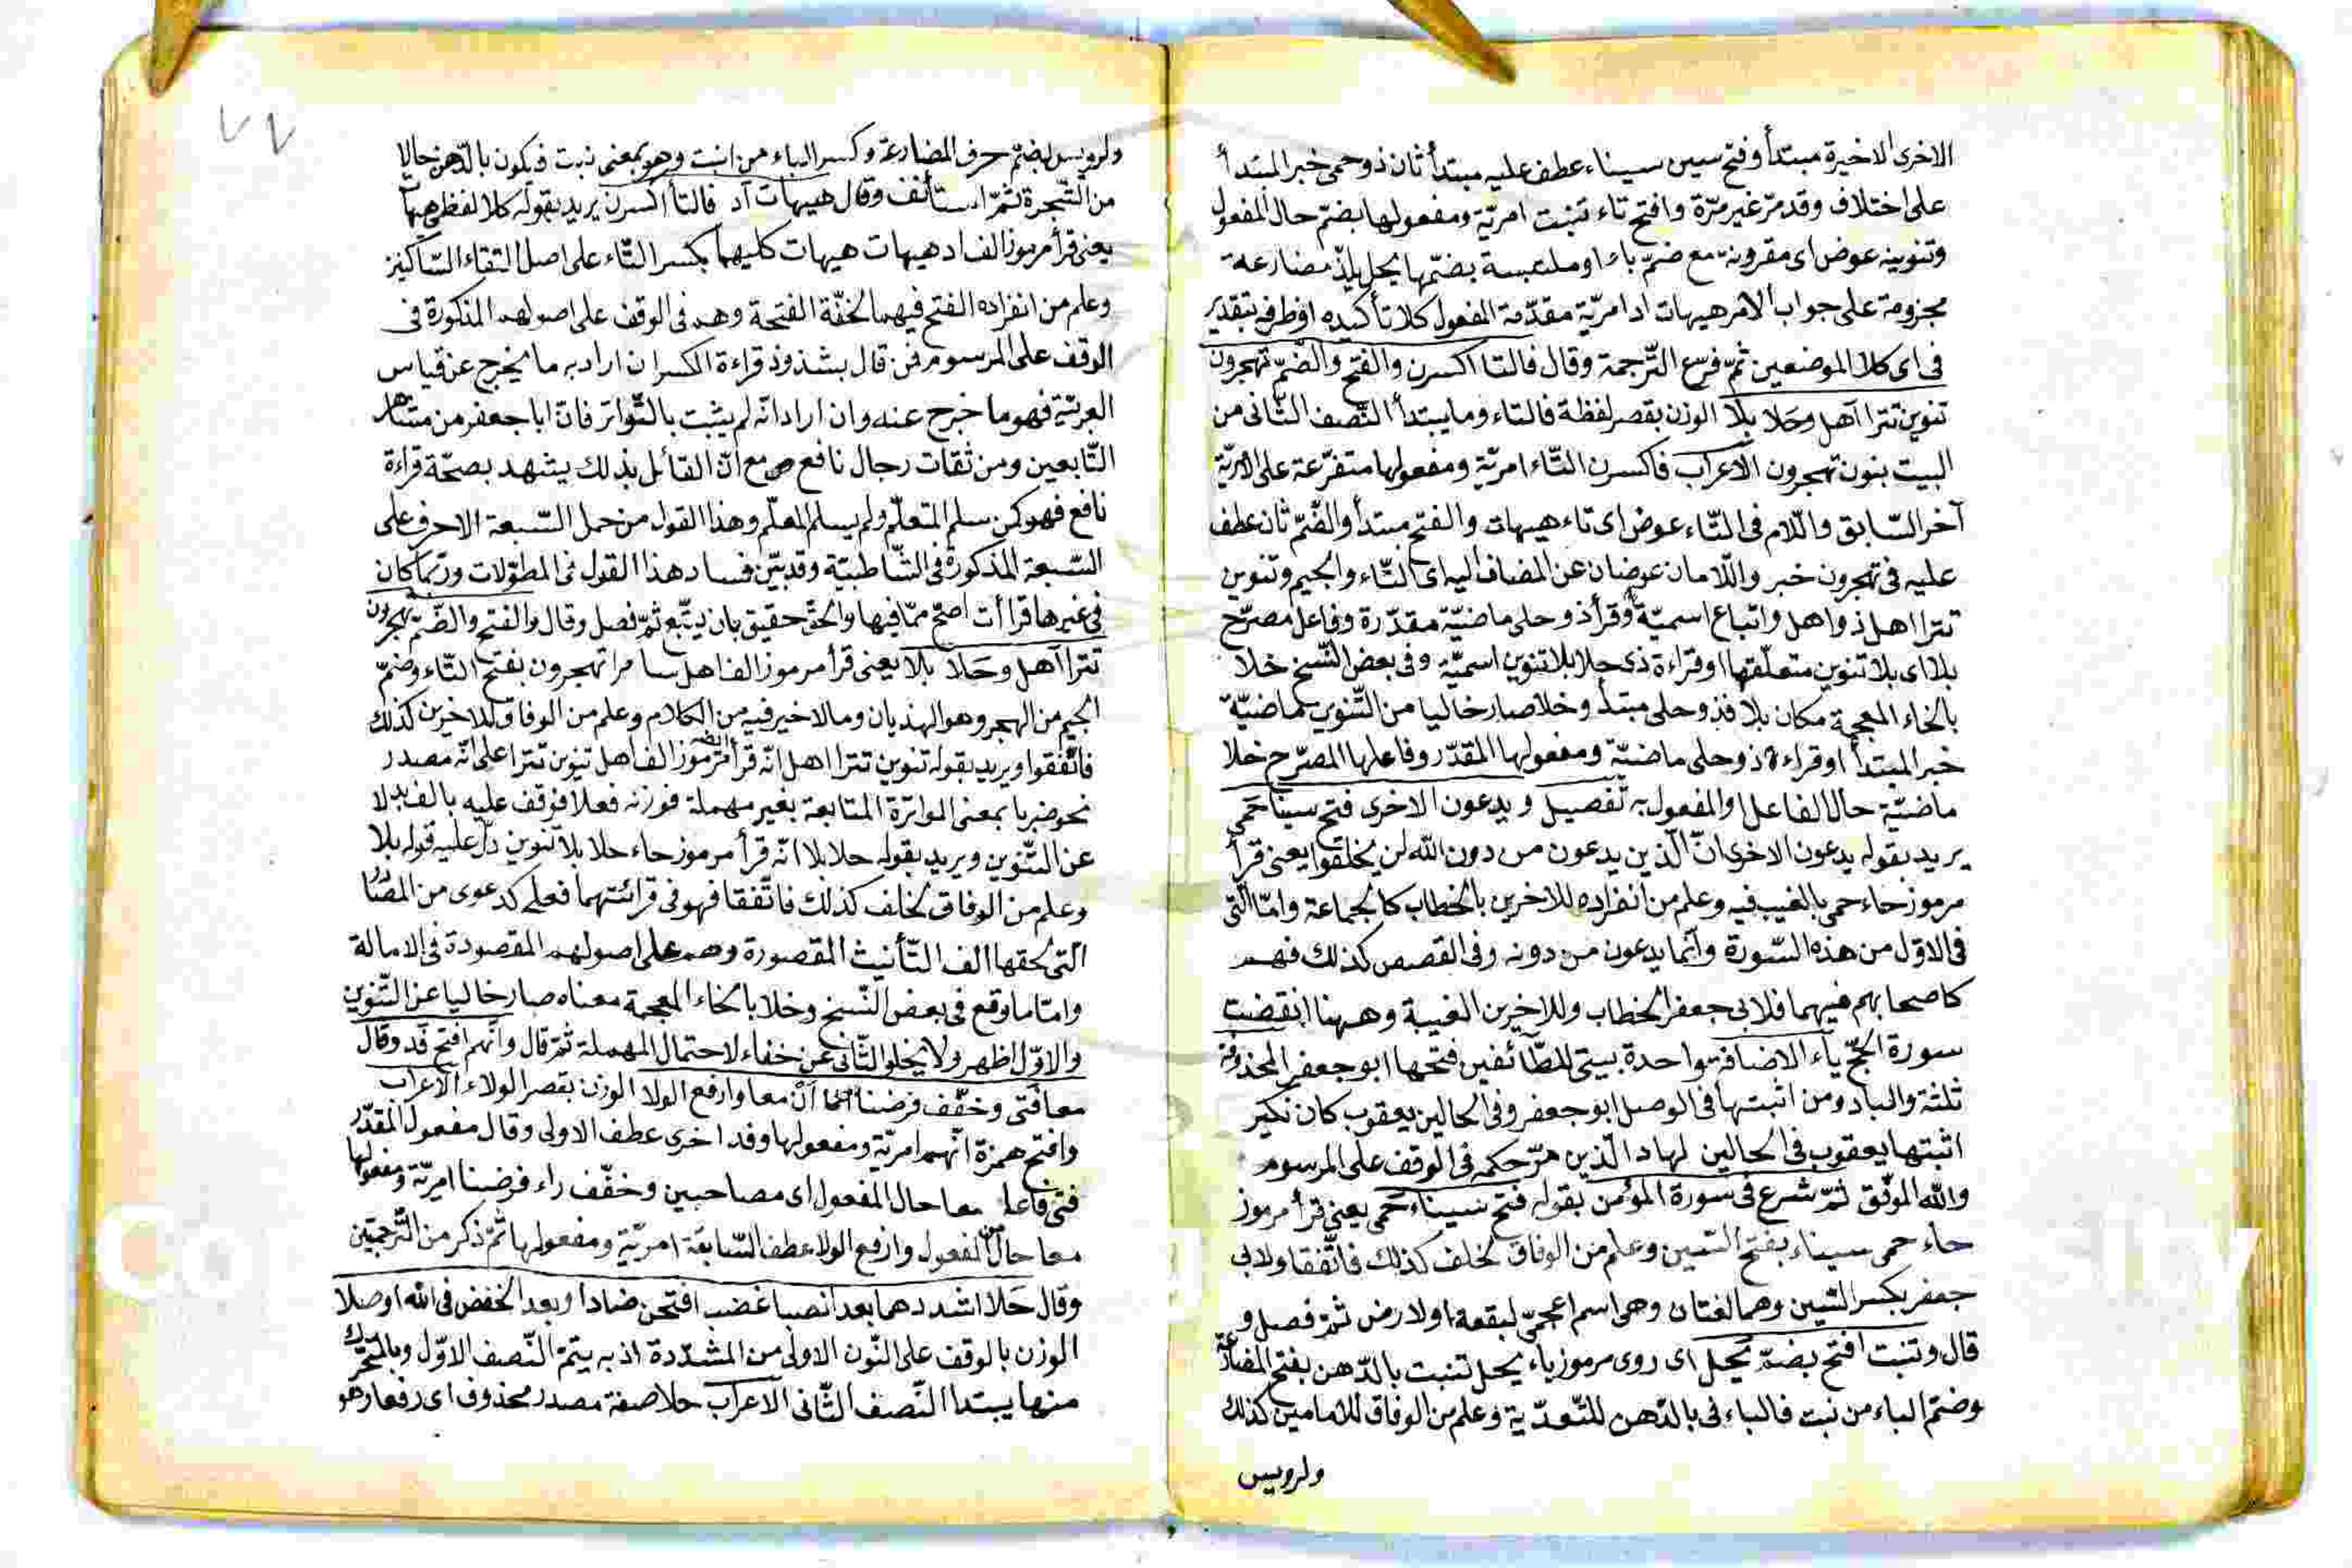 الاخرى الاخيرة مبتدأ وفتح سين سيناء عطف عليه مبتدأ ثان ذو حمى خبر المبتدأ
على اختلاف وقد مرّ غير مرّة وافتح تاء تنبت امريّة ومفعولها بضمّ حال المفعول
وتنوينه عوض اى مقرونة مع ضمّ باء او ملتبسة بضمّها يحل يلذّ مضارعة
مجزومة على جواب الامر هيهات اد امريّة مقدّمة المفعول كلا تأكيده او ظرفه بتقدير
فى اى كلا الموضعين ثمّ فرّع الترجمة وقال فالتا اكسرن والفتح والضّمّ تهجرون
تنوين تترا آهل وحلا بلا الوزن بقصر لفظة فالتاء وما يبتدأ النّصف الثّانى من
البيت بنون تهجرون الاعراب فاكسرن التّاء امريّة ومفعولها متفرّعة على الامريّة
آخر السّابق واللام فى التّاء عوض اى تاء هيهات والفتح مبتدأ والضّمّ ثان عطف
عليه فى تهجرون خبر واللّامان عوضان عن المضاف اليه اى التّاء والجيم وتنوين
تترا اهل ذو اهل واتباع اسميّة وقرأ ذو حلى ماضيّة مقدّرة وفاعل مصرّح
بلا اى بلا تنوين متعلّقها او قراءة ذى حلا بلا تنوين اسميّة وفى بعض النّسخ خلا
بالخاء المعجمة مكان بلا فذو حلى مبتدأ وخلا صار خاليا من التّنوين ماضيّة
خبر المبتدأ او قراءة ذو حلى ماضيّة ومفعولها المقدّر وفاعلها المصرّح خلا
ماضيّة حال الفاعل او المفعول به تفصيل ويدعون الاخرى فتح سينا حمى
يريد بقوله يدعون الاخرى انّ الّذين يدعون من دون الله لن يخلقوا يعنى قرأ
مرموز حاء حمى بالغيب فيه وعلم من انفراده للاخرين بالخطاب كالجماعة وامّا الّتى
فى الاوّل من هذه السّورة وانّما يدعون من دونه وفى القصص كذلك فهم
كاصحابهم فيهما فلابى جعفر الخطاب وللاخرين الغيبة وههنا انقضت
سورة الحجّ ياء الاضافة واحدة بيتى للطّائفين فتحها ابو جعفر المحذوفة
ثلثة والباد ومن اثبتها فى الوصل ابو جعفر وفى الحالين يعقوب كان نكير
اثبتها يعقوب فى الحالين لهاد الّذين مرّ حكمه فى الوقف على المرسوم
والله الموفّق ثمّ شرع فى سورة المؤمن بقوله فتح سيناء حمى يعنى قرأ مرموز
حاء حمى سيناء بفتح السّين وعلم من الوفاق لخلف كذلك فاتّفقا ولابى
جعفر بكسر السّين وهما لغتان وهى اسم اعجمىّ لبقعة او لارض ثمّ فصل و
قال وتنبت افتح بضمّ يحل اى روى مرموز ياء يحل تنبت بالدّهن بفتح المضارعة
وضمّ الباء من نبت فالباء فى بالدّهن للتّعدّية وعلم من الوفاق للامامين كذلك
ولرويس
٧٧
ولرويس بضمّ حرف المضارعة وكسر الباء من انبت وهو بمعنى نبت فيكون بالدّهن حالا
من الشّجرة ثمّ استأنف وقال هيهات اد فالتا اكسرن يريد بقوله كلا لفظى هيهات
يعنى قرأ مرموز الف اد هيهات هيهات كليهما بكسر التّاء على اصل التقاء السّاكنين
وعلم من انفراده الفتح فيهما لخفّة الفتحة وهم فى الوقف على اصولهم المذكورة فى
الوقف على المرسوم فمن قال بشذوذ قراءة الكسر ان اراد به ما يخرج عن قياس
العربيّة فهو ما خرج عنه وان اراد انّه لم يثبت بالتّواتر فانّ ابا جعفر من مشاهر
التّابعين ومن ثقات رجال نافع مع انّ القائل بذلك يشهد بصحّة قراءة
نافع فهو كمن سلم المتعلّم ولم يسلم المعلّم وهذا القول من حمل السّبعة الاحرف على
السّبعة المذكورة فى الشّاطبيّة وقد بيّن فساد هذا القول فى المطوّلات وربّما كان
فى غيرها قراأت اصحّ ممّا فيها والحقّ حقيق بان يتّبع ثمّ فصل وقال والفتح والضّمّ تهجرون
تترا آهل وحلا بلا يعنى قرأ مرموز الف اهل سامرا تهجرون بفتح التّاء وضمّ
الجيم من الهجر وهو الهذيان وما لا خير فيه من الكلام وعلم من الوفاق للاخرين كذلك
فاتّفقوا ويريد بقوله تنوين تترا اهل انّه قرأ مرموز الف اهل تنوين تترا على انّه مصدر
نحو ضربا بمعنى المواترة المتابعة بغير مهملة فوزنه فعلا فوقف عليه بالف بدلا
عن التّنوين ويريد بقوله حلا بلا انّه قرأ مرموز حاء حلا بلا تنوين دلّ عليه قوله بلا
وعلم من الوفاق لخلف كذلك فاتّفقا فهو فى قرائتهما فعلى كدعوى من المصادر
الّتى لحقها الف التّأنيث المقصورة وهم على اصولهم المقصودة فى الامالة
وامّا ما وقع فى بعض النّسخ وخلا بالخاء المعجمة معناه صار خاليا عن التّنوين
والاوّل اظهر ولا يخلو الثّانى عن خفاء لاحتمال المهملة ثمّ قال وانّهم افتح فد وقال
معا فتى وخفّف فرضنا ان معا وارفع الولا الوزن بقصر الولاء الاعراب
وافتح همزة انّهم امريّة ومفعولها وفد اخرى عطف الاولى وقال مفعول المقدّر
فتى فاعل معا حال المفعول اى مصاحبين وخفّف راء فرضنا امريّة ومفعولها
معا حال من المفعول وارفع الولا عطف السّابقة امريّة ومفعولها ثمّ ذكر من التّرجمتين
وقال حلا اشدد هما بعد انصبا غضب افتحن ضادا وبعد الخفض فى الله اوصلا
الوزن بالوقف على النّون الاولى من المشدّدة اذ به يتمّ النّصف الاوّل وبالمتحرّك
منها يبتدا النّصف الثّانى الاعراب حلا صفة مصدر محذوف اى رفعا وهو